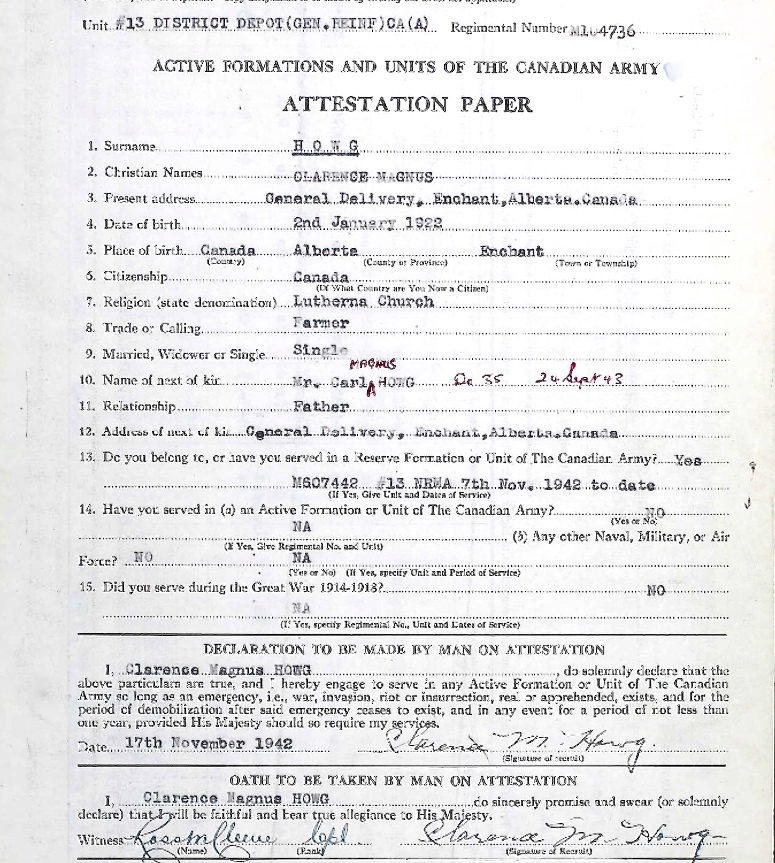 Unit #13 DISTRICT DEPOT(GEN.REINF)CA(A) Regimental Number M104736
ACTIVE FORMATIONS AND UNITS OF THE CANADIAN ARMY
ATTESTATION PAPER
1. Surname H O W G
2. Christian Names CLARENCE MAGNUS
3. Present address General Delivery, Enchant,Alberta.Canada
4. Date of birth 2nd January 1922
5. Place of birth Canada Alberta Enchant
(Country) (County or Province) (Town or Township)
6. Citizenship Canada
(Of What Country are You Now a Citizen)
7. Religion (state denomination) Lutherna Church
8. Trade or Calling Farmer
9. Married, Widower or Single Single
MAGNUS
10. Name of next of kin Mr. Carl HOWG Oc 35 24 Sept 43
11. Relationship Father
12. Address of next of kin General Delivery, Enchant,Alberta.Canada
13. Do you belong to, or have you served in a Reserve Formation or Unit of The Canadian Army? Yes
M607442 #13 NRMA 7th Nov. 1942 to date
(If Yes, Give Unit and Dates of Service)
14. Have you served in (a) an Active Formation or Unit of The Canadian Army? NO
(Yes or No)
NA
(If Yes, Give Regimental No. and Unit) (b) Any other Naval, Military, or Air
Force? NO NA
(Yes or No) (If Yes, specify Unit and Period of Service)
15. Did you serve during the Great War 1914-1918? NO
NA
(If Yes, specify Regimental No., Unit and Dates of Service)
DECLARATION TO BE MADE BY MAN ON ATTESTATION
I, Clarence Magnus HOWG, do solemnly declare that the
above particulars are true, and I hereby engage to serve in any Active Formation or Unit of The Canadian
Army so long as an emergency, i.e., war, invasion, riot or insurrection, real or apprehended, exists, and for the
period of demobilization after said emergency ceases to exist, and in any event for a period of not less than
one year, provided His Majesty should so require my services.
Date 17th November 1942 Clarence M. Howg.
(Signature of recruit)
OATH TO BE TAKEN BY MAN ON ATTESTATION
I, Clarence Magnus HOWG do sincerely promise and swear (or solemnly
declare) that I will be faithful and bear true allegiance to His Majesty.
Witness Cpl. Clarence M Howg
(Name) (Rank) (Signature of Recruit)